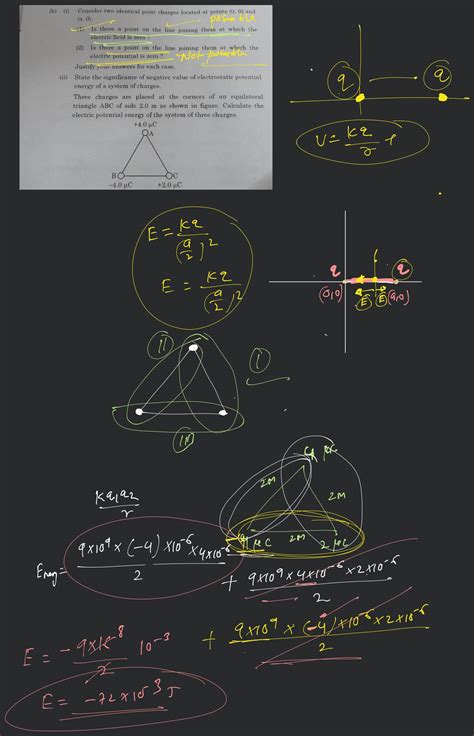 (b) (i) Consider two identical point charges located at points (0, 0) and
(a, 0). possible
(1) Is there a point on the line joining them at which the
electric field is zero ?
(2) Is there a point on the line joining them at which the
electric potential is zero ? Not possible
Justify your answers for each case.
(ii) State the significance of negative value of electrostatic potential
energy of a system of charges.
Three charges are placed at the corners of an equilateral
triangle ABC of side 2.0 m as shown in figure. Calculate the
electric potential energy of the system of three charges.
+4.0 μC
A
B C
–4.0 μC +2.0 μC
q q
V = Kq/r +
E = Kq/(a/2)²
E = Kq/(a/2)²
q q
(0,0) E E (a,0)
II I
III
4 μC
2m 2m
2m
μC 2 μC
Kq₁q₂/r
Energy = 9×10⁹ × (-4) ×10⁻⁶ ×4×10⁻⁶/2
+ 9×10⁹ × 4×10⁻⁶ ×2×10⁻⁶/2
+ 9×10⁹ × (-4) ×10⁻⁶ ×2×10⁻⁶/2
E = 10⁻³
E = -72×10⁻³ J